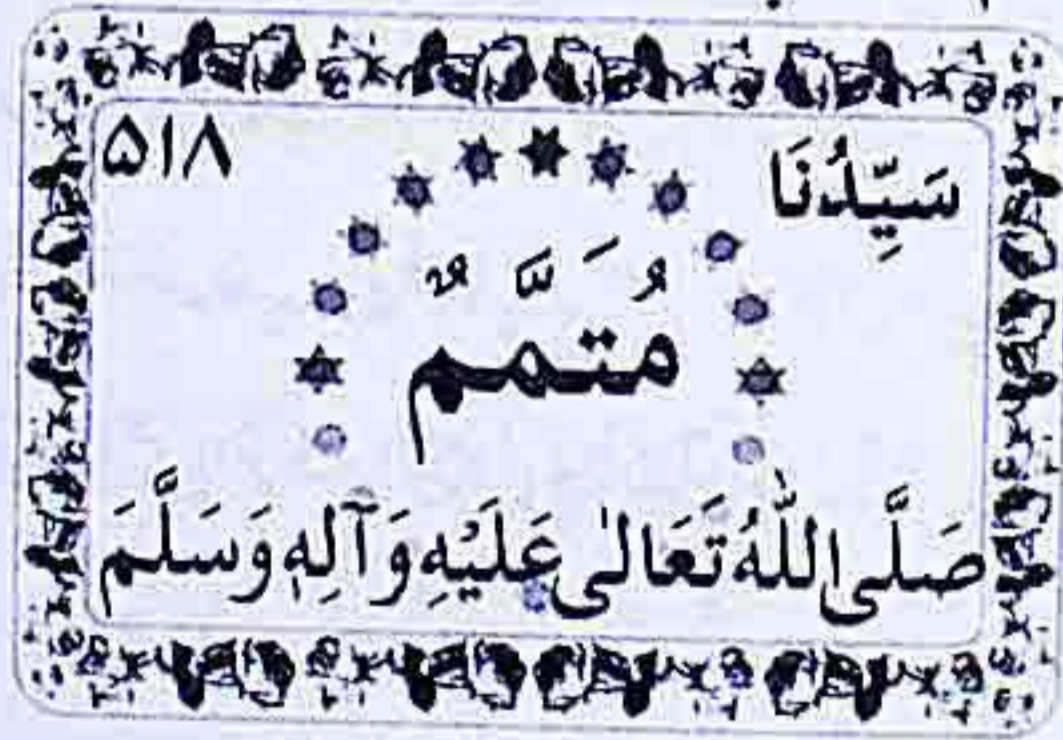 سَيِّدُنَا
۵۱۸
مُتَمَّمٌ
صَلَّى اللّٰهُ تَعَالٰى عَلَيْهِ وَآلِهٖ وَسَلَّمَ